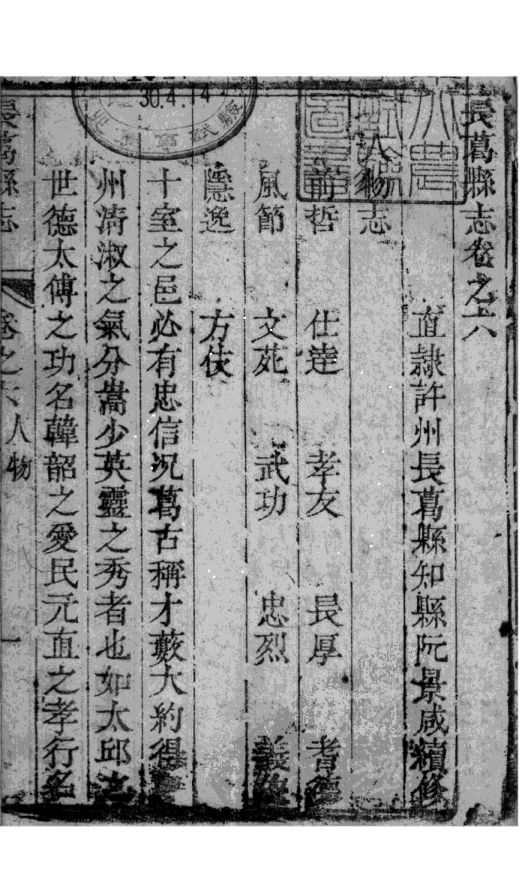 長葛縣志卷之六
直隸許州長葛縣知縣阮景咸續修
人物志
前哲 仕達 孝友 長厚 耆德
風節 文苑 武功 忠烈 義
隱逸 方伎
十室之邑必有忠信況葛古稱才藪大約得
州清淑之氣分嵩少英靈之秀者也如太邱
世德太傅之功名韓韶之愛民元直之孝行名
長葛縣志 卷之六 人物 一
30.4.14